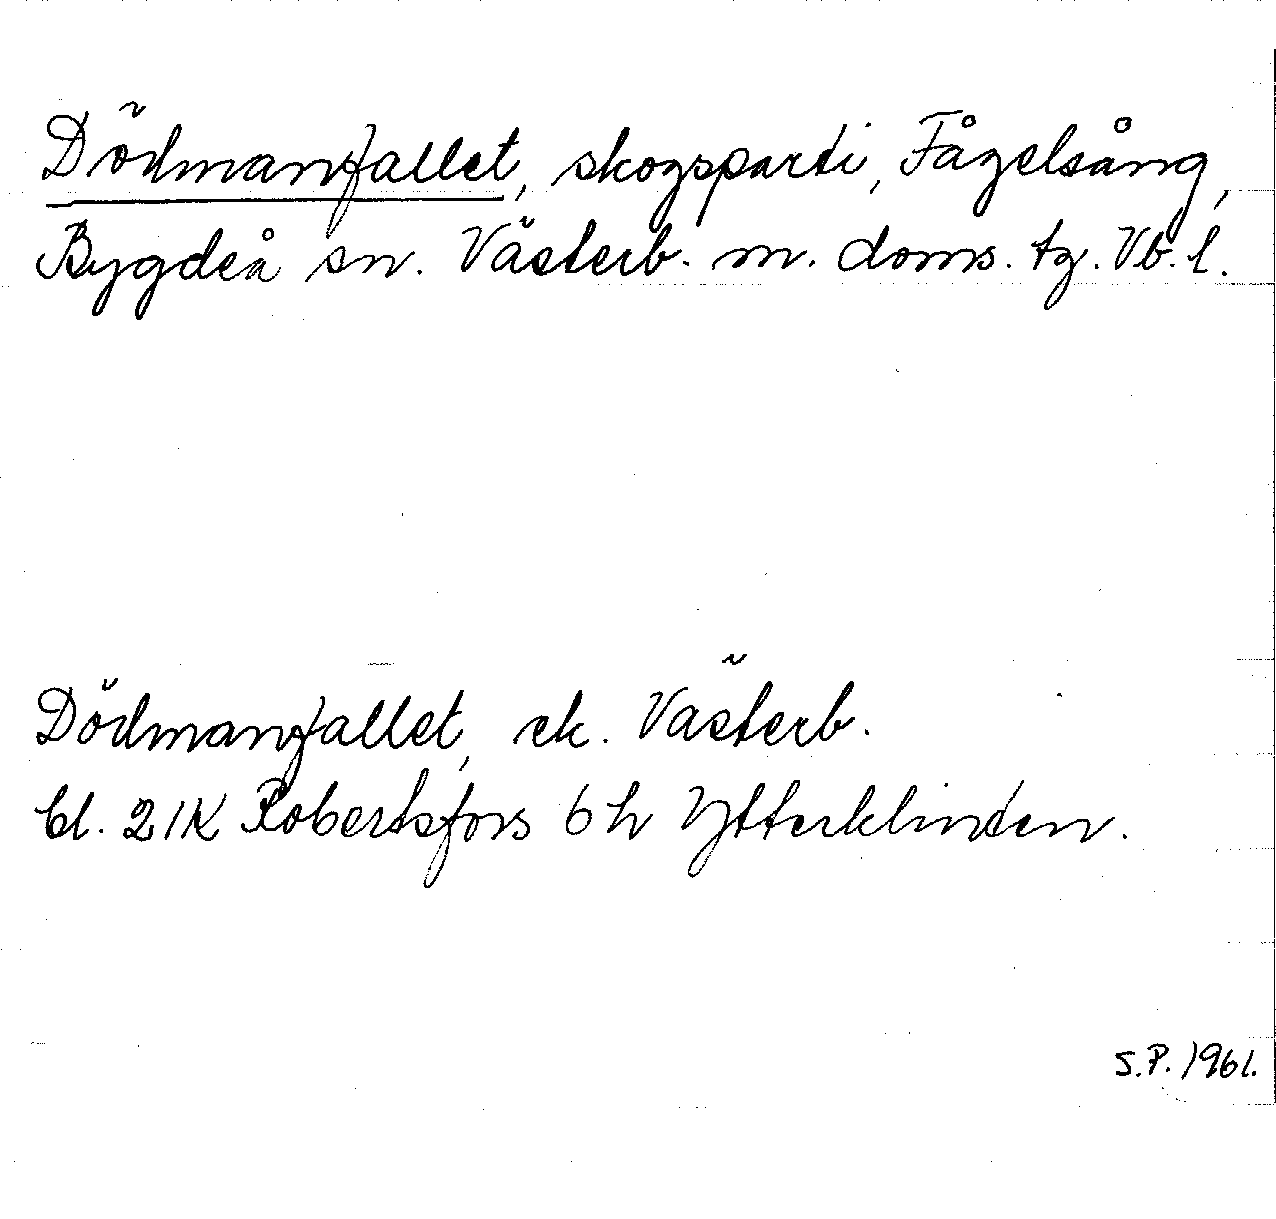 Dödmanfallet, skogsparti, Fågelsång,
Bygdeå sn. Västerb. m. doms. tg. Vb. l.
Dödmanfallet, ek. Västerb.
bl. 21K Robertsfors 6 h Ytterklinten.
S.P. 1961.